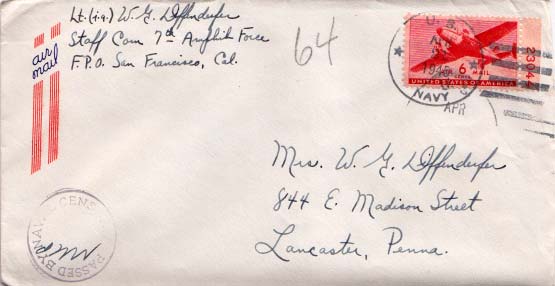 Lt. (j.g.) W. G. Diffenderfer
Staff Com 7th Amphib Force
F.P.O. San Francisco, Cal.
air
mail
64
U. S.
1945
NAVY
APR
6
MAIL
UNITED STATES OF AMERICA
23044
Mrs. W. G. Diffenderfer
844 E. Madison Street
Lancaster, Penna.
PASSED BY NAVAL CENS